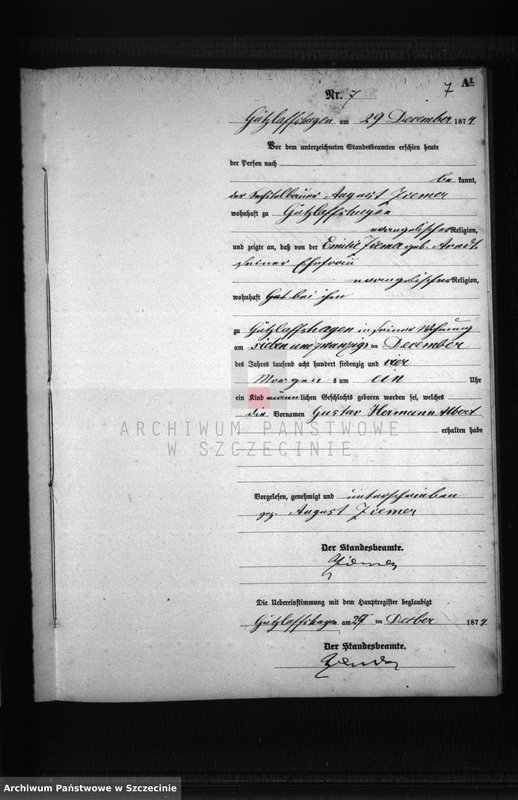 7 A¹.
Nr. 7
Gützlaffshagen am 29 December 1874
Vor dem unterzeichneten Standesbeamten erschien heute
der Person nach
be kannt,
der August Ziemer
wohnhaft zu Gützlaffshagen
evangelischer Religion,
und zeigte an, daß von der Emilie Ziemer geb. Arndt
seiner Ehefrau
evangelischer Religion,
wohnhaft bei ihm
zu Gützlaffshagen in seiner Wohnung
am sieben und zwanzigs ten December
des Jahres tausend acht hundert siebenzig und vier
Morgens um ein Uhr
ein Kind männlichen Geschlechts geboren worden sei, welches
die Vornamen Gustav Hermann Albert
erhalten habe
ARCHIWUM PAŃSTWOWE
W SZCZECINIE
Vorgelesen, genehmigt und unterschrieben
gez. August Ziemer
Der Standesbeamte.
Die Uebereinstimmung mit dem Hauptregister beglaubigt
Gützlaffshagen am 29 ten Decber 1874
Der Standesbeamte.
Archiwum Państwowe w Szczecinie
Archiwum Państwowe w Szczecinie